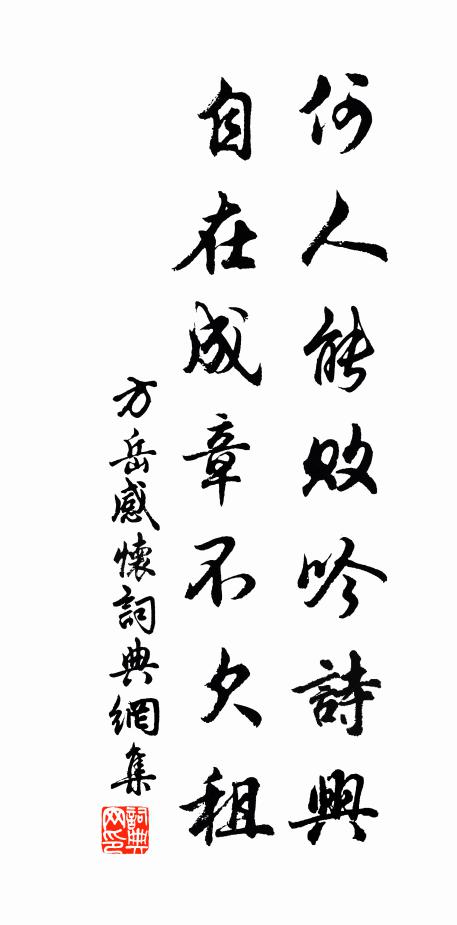 何人能敗吟詩興
自在成章不欠租
方岳感懷詞典網集
詞典
网印